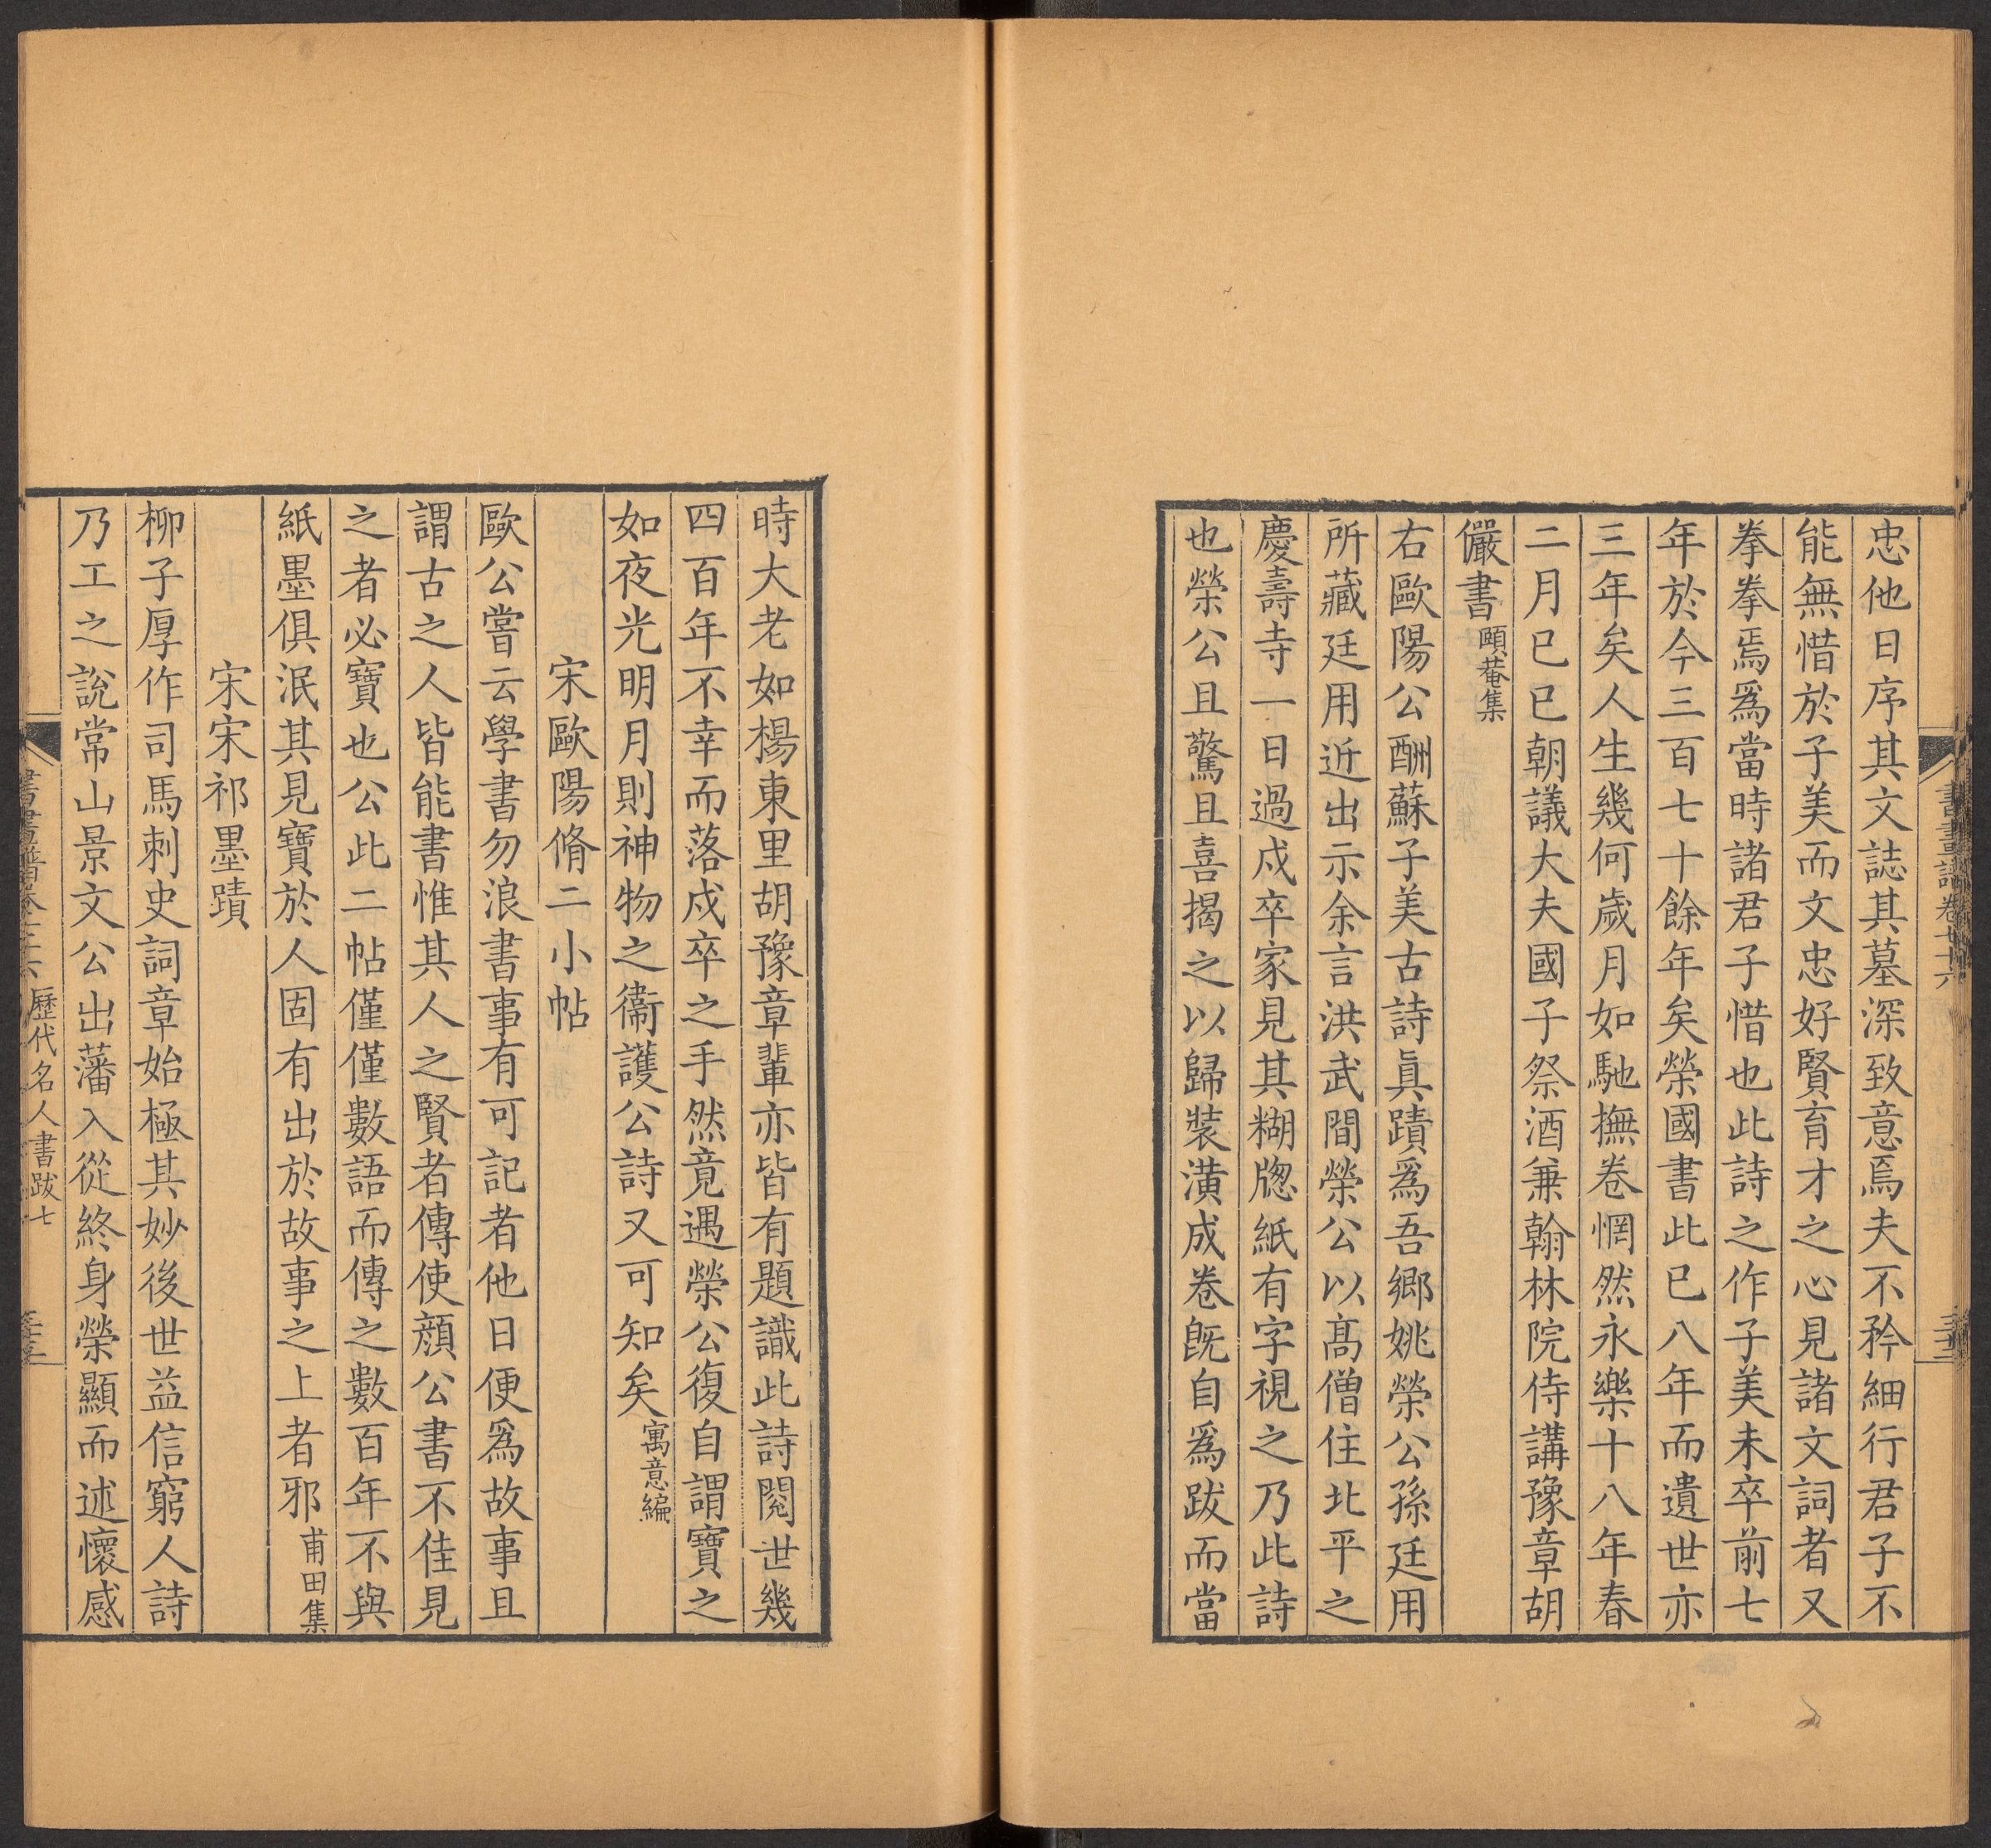 忠他日序其文誌其墓深致意焉夫不矜細行君子不
能無惜於子美而文忠好賢育才之心見諸文詞者又
拳拳焉爲當時諸君子惜也此詩之作子美未卒前七
年於今三百七十餘年矣榮國書此已八年而遺世亦
三年矣人生幾何歲月如馳撫卷惘然永樂十八年春
二月已巳朝議大夫國子祭酒兼翰林院侍講豫章胡
儼書頤菴集
右歐陽公酬蘇子美古詩眞蹟爲吾鄉姚榮公孫廷用
所藏廷用近出示余言洪武間榮公以髙僧住北平之
慶壽寺一日過戍卒家見其糊牎紙有字視之乃此詩
也榮公且驚且喜揭之以歸裝潢成卷旣自爲跋而當
時大老如楊東里胡豫章輩亦皆有題識此詩閱世幾
四百年不幸而落戍卒之手然竟遇榮公復自謂寶之
如夜光明月則神物之衞護公詩又可知矣寓意編
宋歐陽脩二小帖
歐公嘗云學書勿浪書事有可記者他日便爲故事且
謂古之人皆能書惟其人之賢者傳使顔公書不佳見
之者必寶也公此二帖僅僅數語而傳之數百年不與
紙墨俱泯其見寶於人固有出於故事之上者邪甫田集
宋宋祁墨蹟
柳子厚作司馬刺史詞章始極其妙後世益信窮人詩
乃工之說常山景文公出藩入從終身榮顯而述懷感
歷代名人書跋七